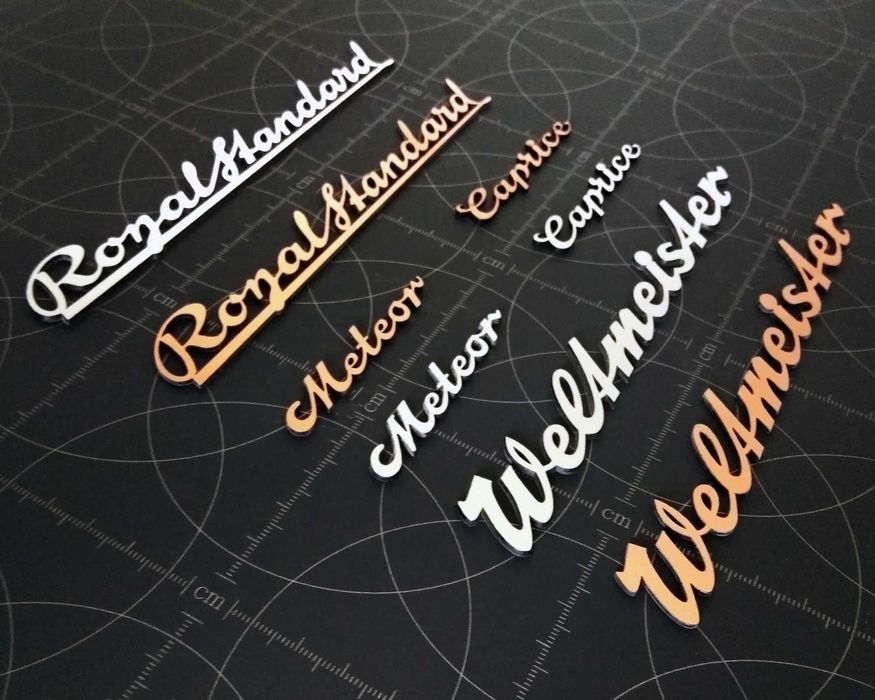 Royal Standard
Royal Standard
Caprice
Caprice
Meteor
Meteor
Weltmeister
Weltmeister
cm
cm
cm
cm
cm
cm
cm